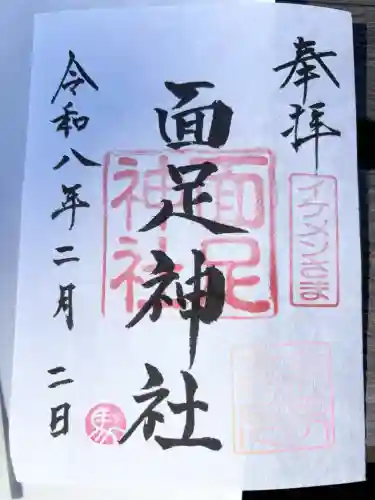 奉拝
イケメンさま
面足神社
面足神社
令和八年二月二日